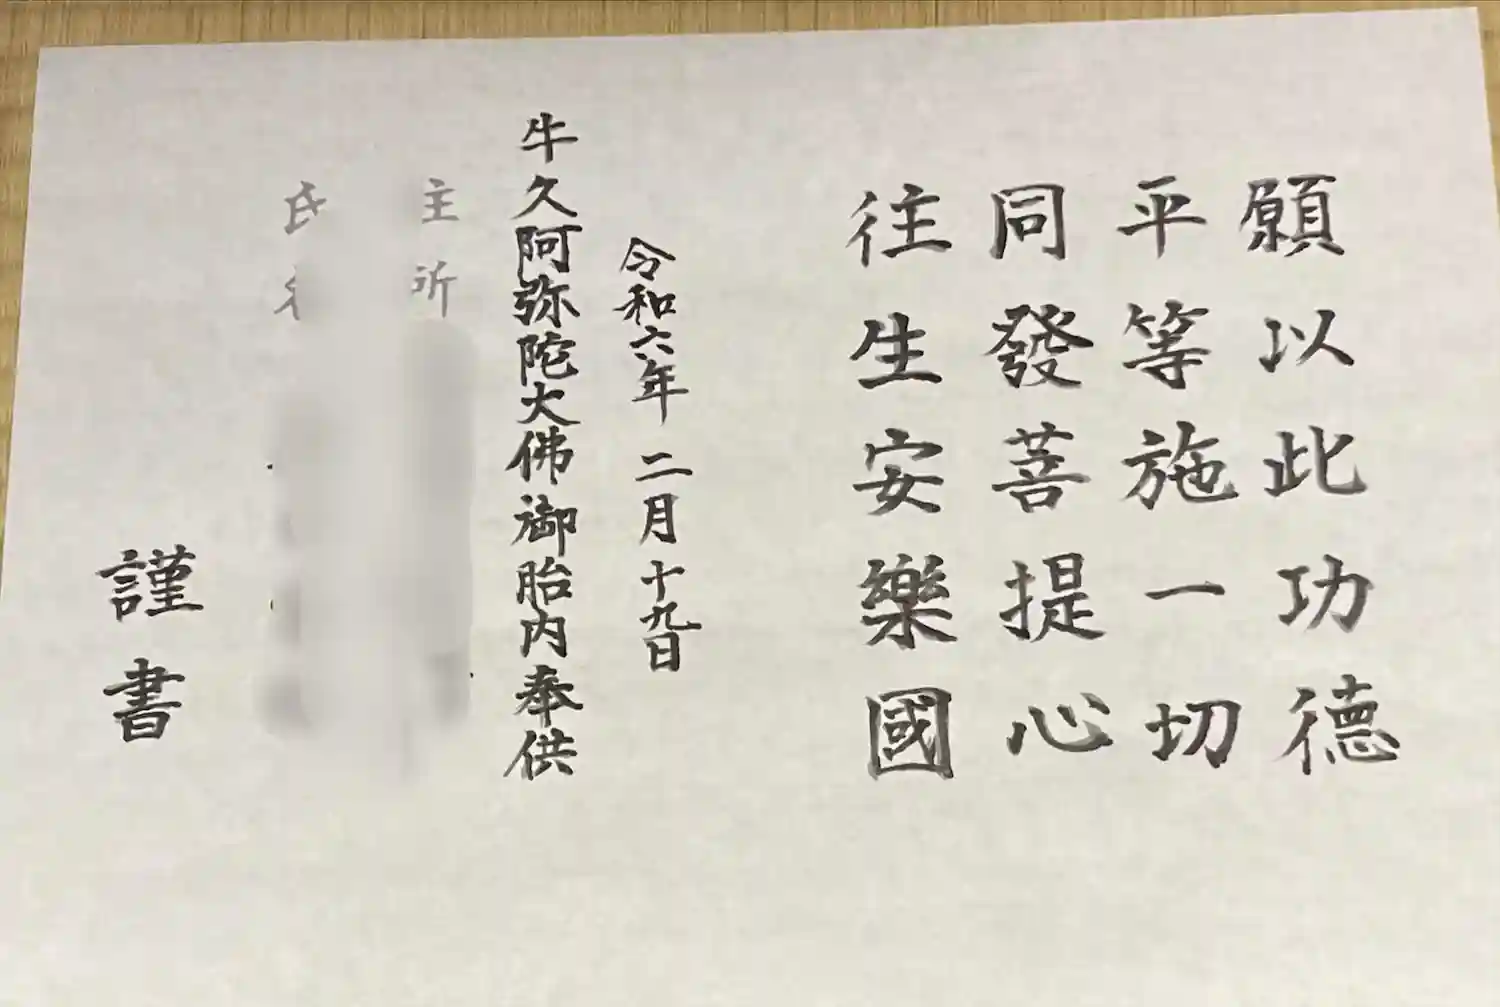 願以此功德
平等施一切
同發菩提心
往生安樂國
令和六年 二月十九日
牛久阿弥陀大佛御胎内奉供
主所
氏
謹書